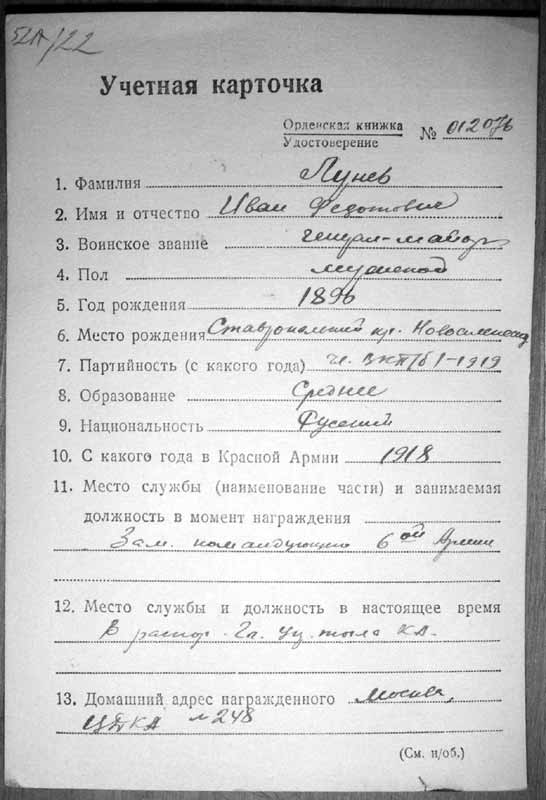 Учетная карточка
Орденская книжка
Удостоверение
№ 012076
1. Фамилия Лунев
2. Имя и отчество Иван Федотович
3. Воинское звание генерал-майор
4. Пол мужской
5. Год рождения 1896
6. Место рождения Ставропольский кр.
7. Партийность (с какого года) чл. ВКП/б/-1919
8. Образование Среднее
9. Национальность Русский
10. С какого года в Красной Армии 1918
11. Место службы (наименование части) и занимаемая
должность в момент награждения
Зам. командующего 6ой Армии
12. Место службы и должность в настоящее время
В распор. Гл. Упр. тыла КА.
13. Домашний адрес награжденного Москва,
№ 248
(См. н/об.)